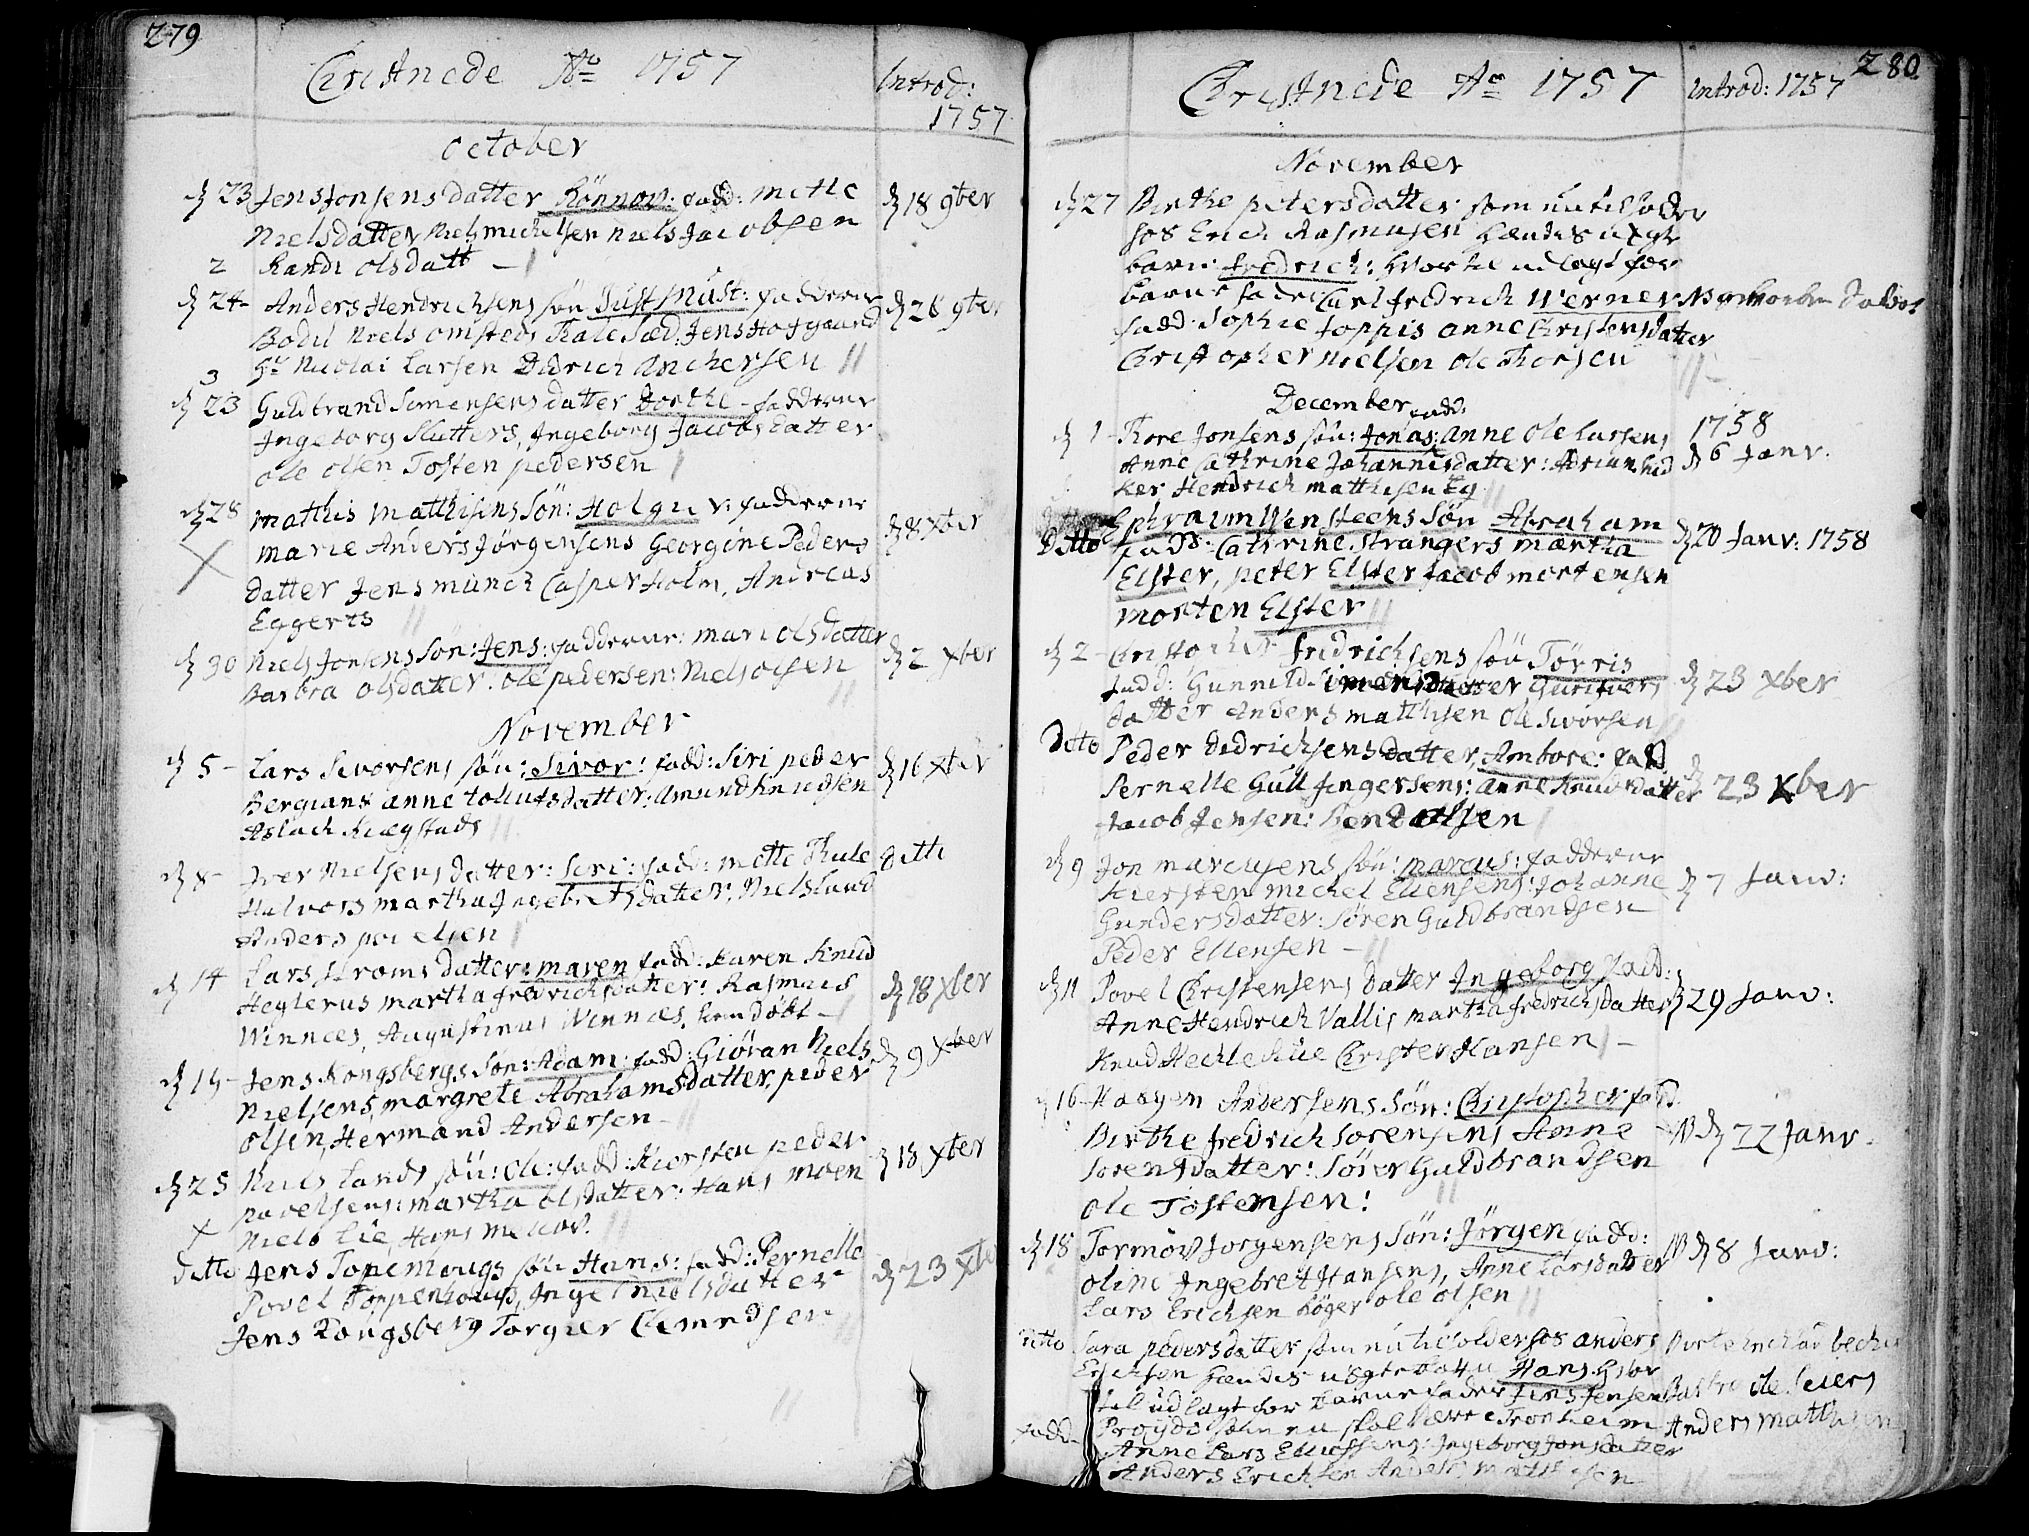 279
Christnede Ao 1757
Introd:
1757
October
d 23 Jens Jonsens datter Rönnov: fadd: Mette
Nielsdatter Niels Michelsen Niels Jacobsen
d 18 9ber
2 Randi Olsdatt
d 24 Anders Hendrichsens søn Just Must: fadderne
d 26 9ber
Bodil Niels Omsteds Jens Hofgaard
3 Hr Nicolai Larsen Didrich Anchersen
d 23 Guldbrand Simensens datter Dorthe fadderne
Ingeborg Slutters, Ingeborg Jacobsdatter
Ole Olsen Tosten Pedersen
d 28 Mathis Matthisens Søn: Holger: fadderne
X Marie Anders Jørgensens Georgine Peders
d 8 Xber
datter Jens Munch Casper Holm, Andreas
Eggerts
d 30 Niels Jonsens Søn: Jens: fadderne: Mari Olsdatter
d 2 Xber
Barbra Olsdatter: Ole Pedersen: Niels Olsen
November
d 5 Lars Siversens søn: Siver: fadd: Siri Peder
d 16 Xber
Bergians Anne Tollufsdatter: Amund Knudsen
Aslach Kiegstad
d 8 Iver Nielsens datter: Siri: fadd: Mette Thule
ditto
Halvors Martha Ingebretsdatter: Niels Lund
Anders Povelsen
d 14 Lars Stroms datter: Maren fadd: Karen Knud
Heglerus Martha Fredrichsdatter: Rasmus
d 18 Xber
Winnces, Augustinus Winnces, hiemdøbt
d 15 Jens Kongsbergs Søn: Adam: fadd: Giøran Niels
d 9 Xber
Nielsens, Margrete Abrahamsdatter, Peder
Olsen, Hermand Andersen
d 25 Niels Lands søn: Ole: fadd: Kiersten Peder
d 18 Xber
Povelsens: Martha Olsdatter: Hans Moen
X Niels Lie, Hans
Ditto Jens Topenhougs søn Hans: fadd: Pernelle
d 23 Xber
Povel Toppenhougs, Ingel Nielsdatter
Jens Kongsberg Torgier Clemedsen
280
Christnede Ao 1757
Introd: 1757
November
d 27 Birthe Petersdatter som nu tilholder
hos Erich Rasmusen hændes uægte
barn: Fredrich: hvortil udlagt for
barne fader Carl Fredrich Werner
fadd: Sophie Joppis Anne Christensdatter
Christopher Nielsen Ole Thorsen
December
fadd:
d 1 Tore Jonsens søn: Jonas: Anne Ole Larsens
1758
Anne Cathrine Johannesdatter:
d 6 Janv:
ker Hendrich Matthisen Eg
Ditto Ephraim Wensteens Søn Abraham
fadd: Cathrine Strangers Martha
d 20 Janv: 1758
Elster, Peter Elster Jacob Mortensen
Morten Elster
d 2 Christopher Fredrichsens søn Tørris
fadd: Gunnild Simensdatter Guri Ivers
d 23 Xber
datter Anders Matthisen Ole Sivorsen
Ditto Peder Didrichsens datter, Ambore: fadd
Pernelle Gull Ingersens: Anne Knudsdatter
d 23 Xber
Jacob Jensen: Bendt Olsen
d 9 Jon Marcusens søn: Marcus: fadderne
Kiersten Michel Ellensens: Johanne
d 7 Janv:
Gundersdatter: Søren Guldbrandsen
Peder Ellensen
d 11 Povel Christensens datter Ingeborg fadd:
Anne Hendrich Vallis Martha Fredrichsdatter
d 29 Janv:
Knud Christen Hansen
16 Haagen Andersens Søn: Christopher fadd
Birthe Fredrich Sørensens Anne
d 22 Janv.
Sørensdatter: Sører Guldbrandsen
Ole Tostensen!
d 18 Tormov Jorgensens Søn: Jørgen fadd:
d 8 Janv:
Oline Ingebret Hansens, Anne Larsdatter
Lars Erichsen Høger Ole Olsen
Ditto Sara Pedersdatter som nu tilholder hos Anders
Erichsen hændes uægte Hans hvor
til udlagt for barne fader Jens Jensen
Ole Leiers
som nu skal være i Tronheim
Anders Matthisen
fadd Anne Lars Ellefsens: Ingeborg Jonsdatter
Anders Erichsen Anders Matthisen